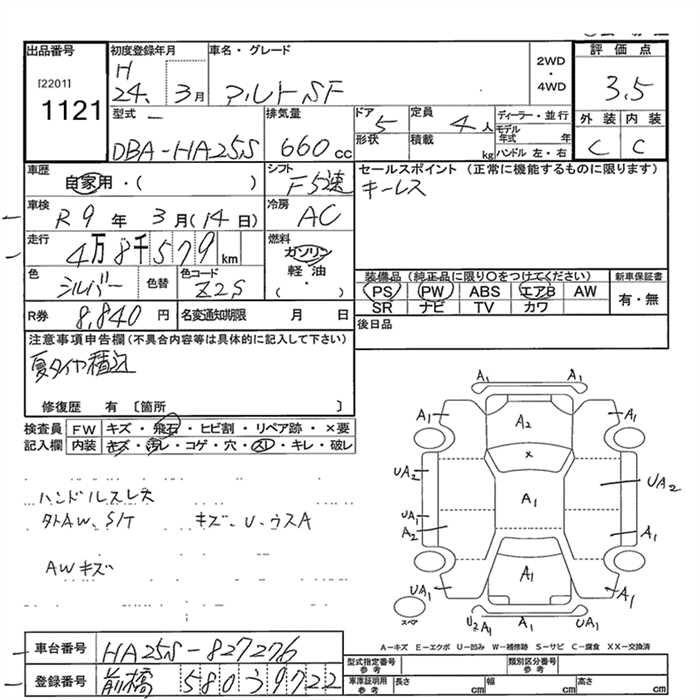 出品番号 初度登録年月 車名・グレード 2WD・4WD 評価点
[2201]
1121
H
24. 3月 アルト SF 3.5
型式 排気量 ドア 5 定員 4人 ディーラー・並行 外装 内装
DBA-HA25S 660cc 形状 積載 kg モデル年式 年 C C
ハンドル 左・右
車歴 シフト セールスポイント (正常に機能するものに限ります)
自家用・( ) F5速 キーレス
車検 冷房
R9年 3月(14日) AC
走行 燃料
4万8千579km ガソリン
色 色替 色コード 軽油 装備品(純正品に限り○をつけてください) 新車保証書
シルバー Z2S ・ PS PW ABS エアB AW 有・無
( ) SR ナビ TV カワ
R券 8,840円 名変通知期限 月 日 後日品
注意事項申告欄(不具合内容等は具体的に記入して下さい)
夏タイヤ積込
修復歴 有〔箇所 〕
検査員 FW キズ・飛石・ヒビ割・リペア跡・×要
記入欄 内装 キズ・汚レ・コゲ・穴・スレ・キレ・破レ
ハンドルスレ大
外AW、S/T キズ、U、ウスA
AWキズ
A1 A1
A1 A2 A1
×
UA2 A1 UA2
UA1
A2 A1
UA1 A1 A1
スペア U2 A1 UA1
A-キズ E-エクボ U-凹み W-補修跡 S-サビ C-腐食 XX-交換済
車台番号 HA25S-827276 型式指定番号 参考 類別区分番号 参考
登録番号 前橋 580 39722 車庫証明用 参考 長さ cm 幅 cm 高さ cm